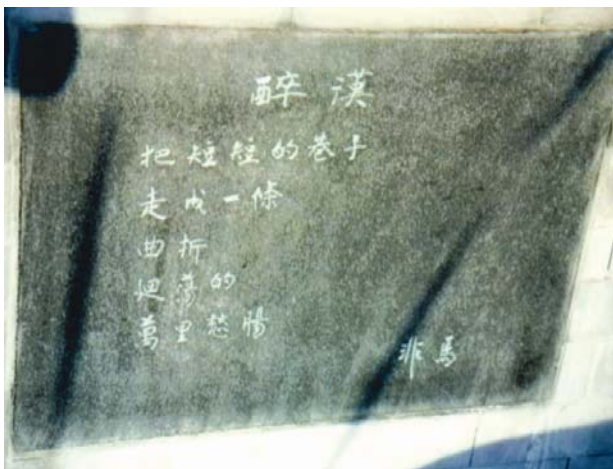 醉漢
把短短的巷子
走成一條
曲折
迴蕩的
萬里愁腸
非馬